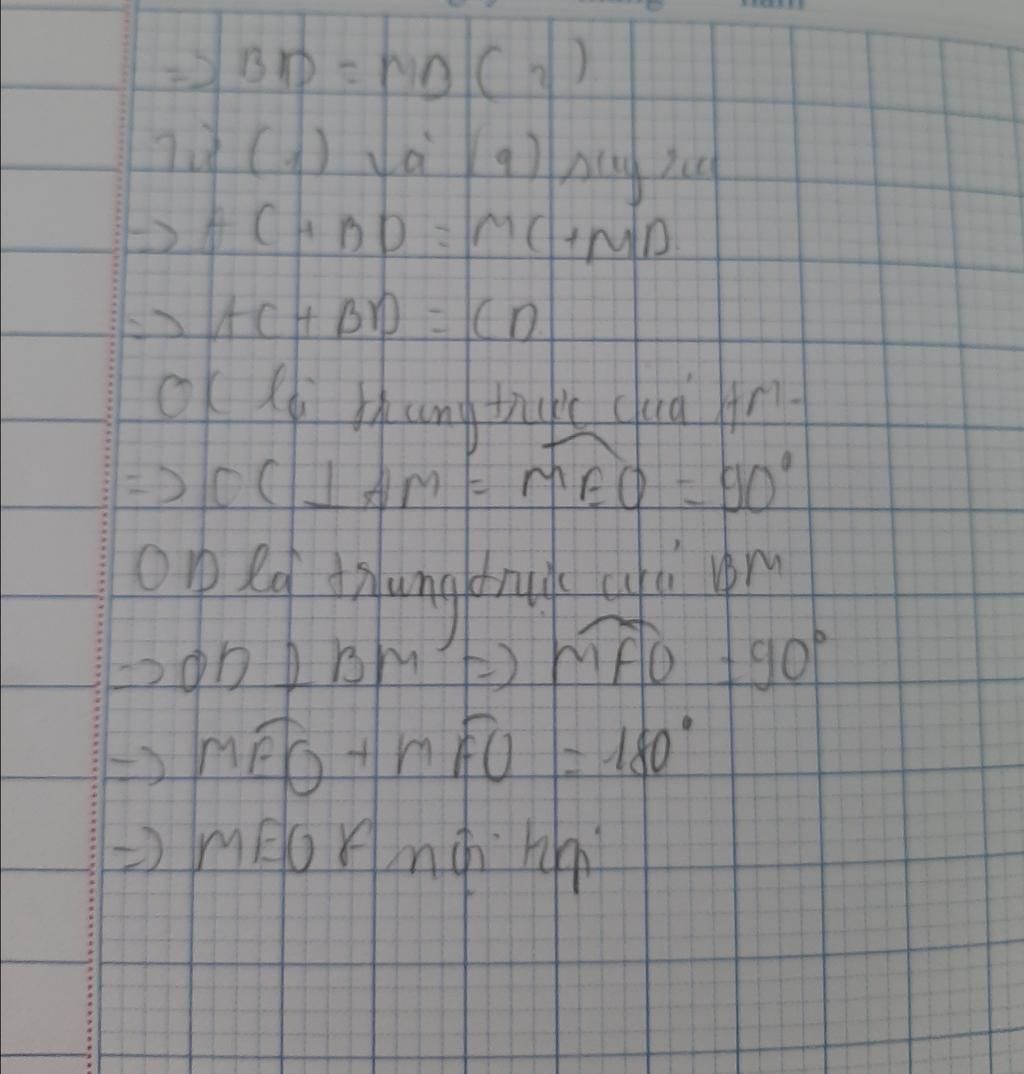 => BD = MD (2)
Từ (1) và (2) suy ra
=> AC + BD = MC + MD
=> AC + BD = CD
OC là trung trực của AM
=> OC ⊥ AM = MEO = 90°
OD là trung trực của BM
=> OD ⊥ BM => MFO = 90°
=> MEO + MFO = 180°
=> MEOF nội tiếp